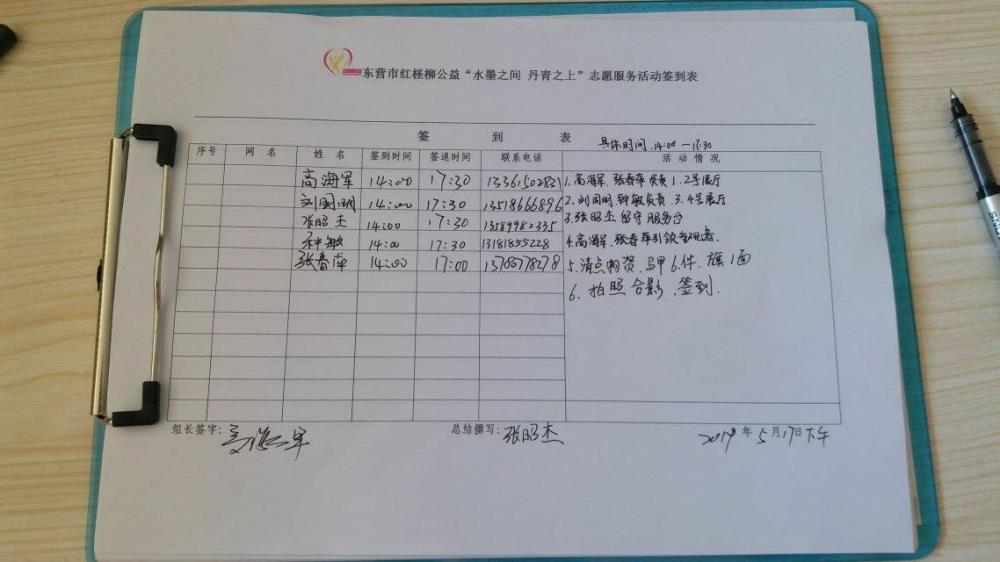 东营市红柽柳公益“水墨之间 丹青之上”志愿服务活动签到表
签 到 表
具体时间 14:00-17:30
序号 网名 姓名 签到时间 签退时间 联系电话 活动情况
高海军 14:00 17:30 1.高海军、张春萍负责1.2号展厅
刘国明 14:00 17:30 13518666896 2.刘国明 钟敏负责3.4号展厅
张昭杰 14:00 17:30 13589982335 3.张昭杰 留守服务台
钟敏 14:00 17:30 13181855228 4.高海军、张春萍引领参观者.
张春萍 14:00 17:00 5.清点物资、马甲6件、旗1面
6、拍照合影、签到.
组长签字：高海军 总结撰写：张昭杰 5月17日下午